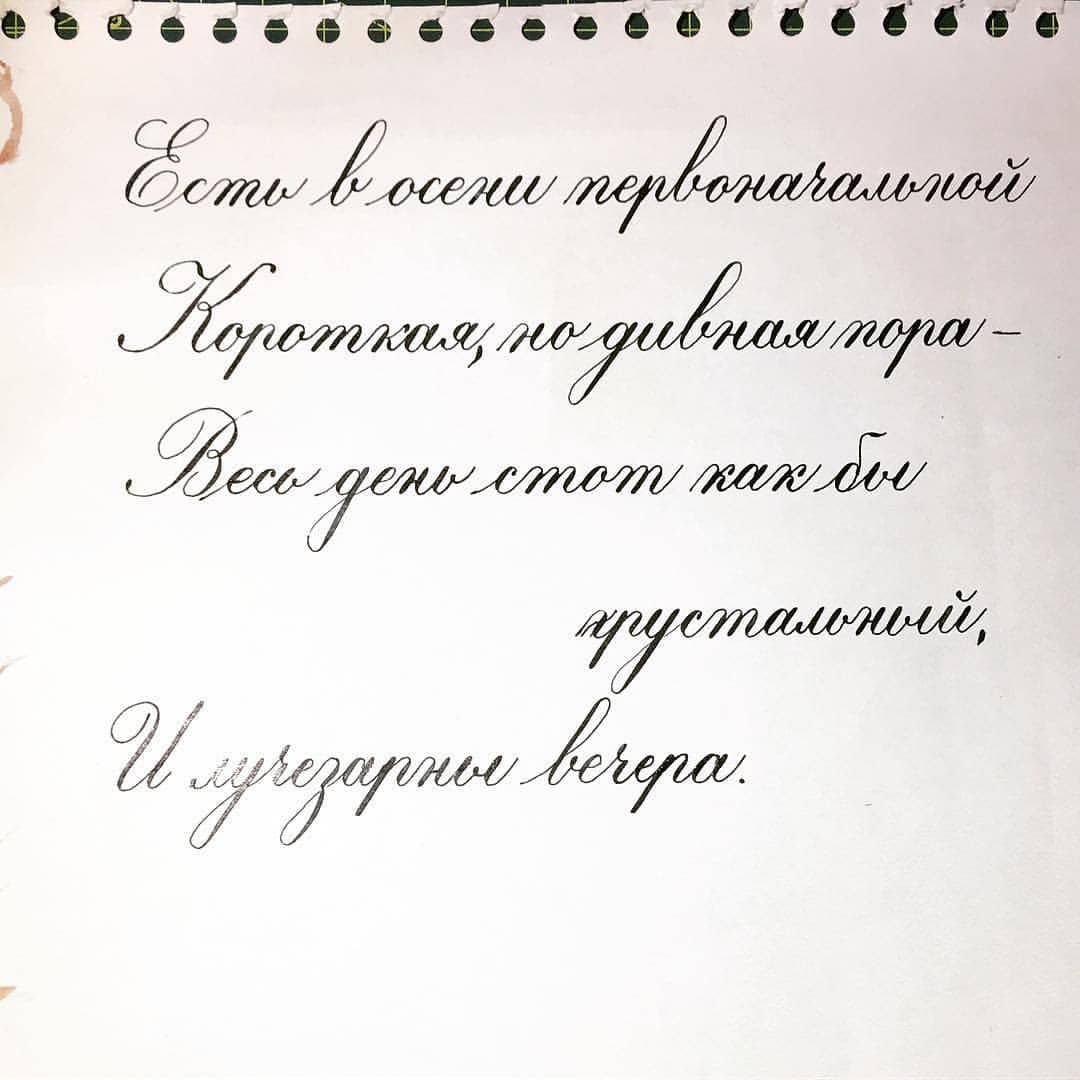 Есть в осени первоначальной
Короткая, но дивная пора –
Весь день стот как бы
хрустальный,
И лучезарны вечера.